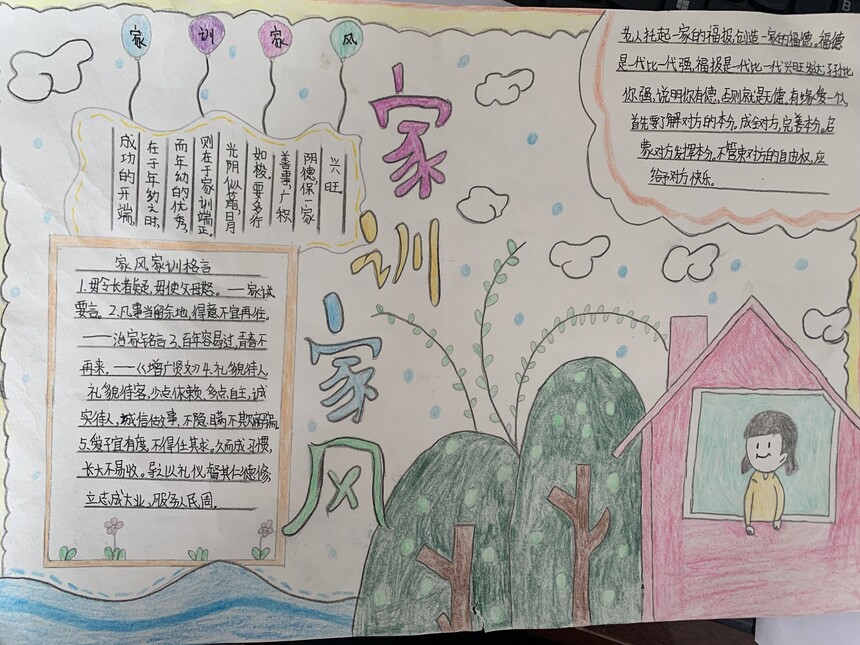 家训家风
家训家风
兴旺。
阴德,保一家
善事,广积
如梭。要多行
光阴似箭,日月
则在于家训端正。
而年幼的优秀,
在于年幼之时,
成功的开端,
家风家训格言
1.毋令长者疑,毋使父母怒。——家诫
要言。2.凡事当留余地,得意不宜再往。
——治家格言3.百年容易过,青春不
再来。——《增广贤文》4.礼貌待人
礼貌待客,少点依赖,多点自主,诚
实待人,诚信做事,不隐瞒不欺
5.爱子宜有度,不得任其求,久而成习惯,
长大不易收。教以礼仪,督其仁德修,
立志成大业,服务人民周。
先人托起一家的福报,创造一家的福德。福德
是一代比一代强,福报是一代比一代兴旺发达,子孙比
你强,说明你有德,否则就是无德,有缘爱一个人,
首先要了解对方的本分。成全对方,完善本分。启
蒙对方发挥本分。不管束对方的自由权,应
给予对方快乐。